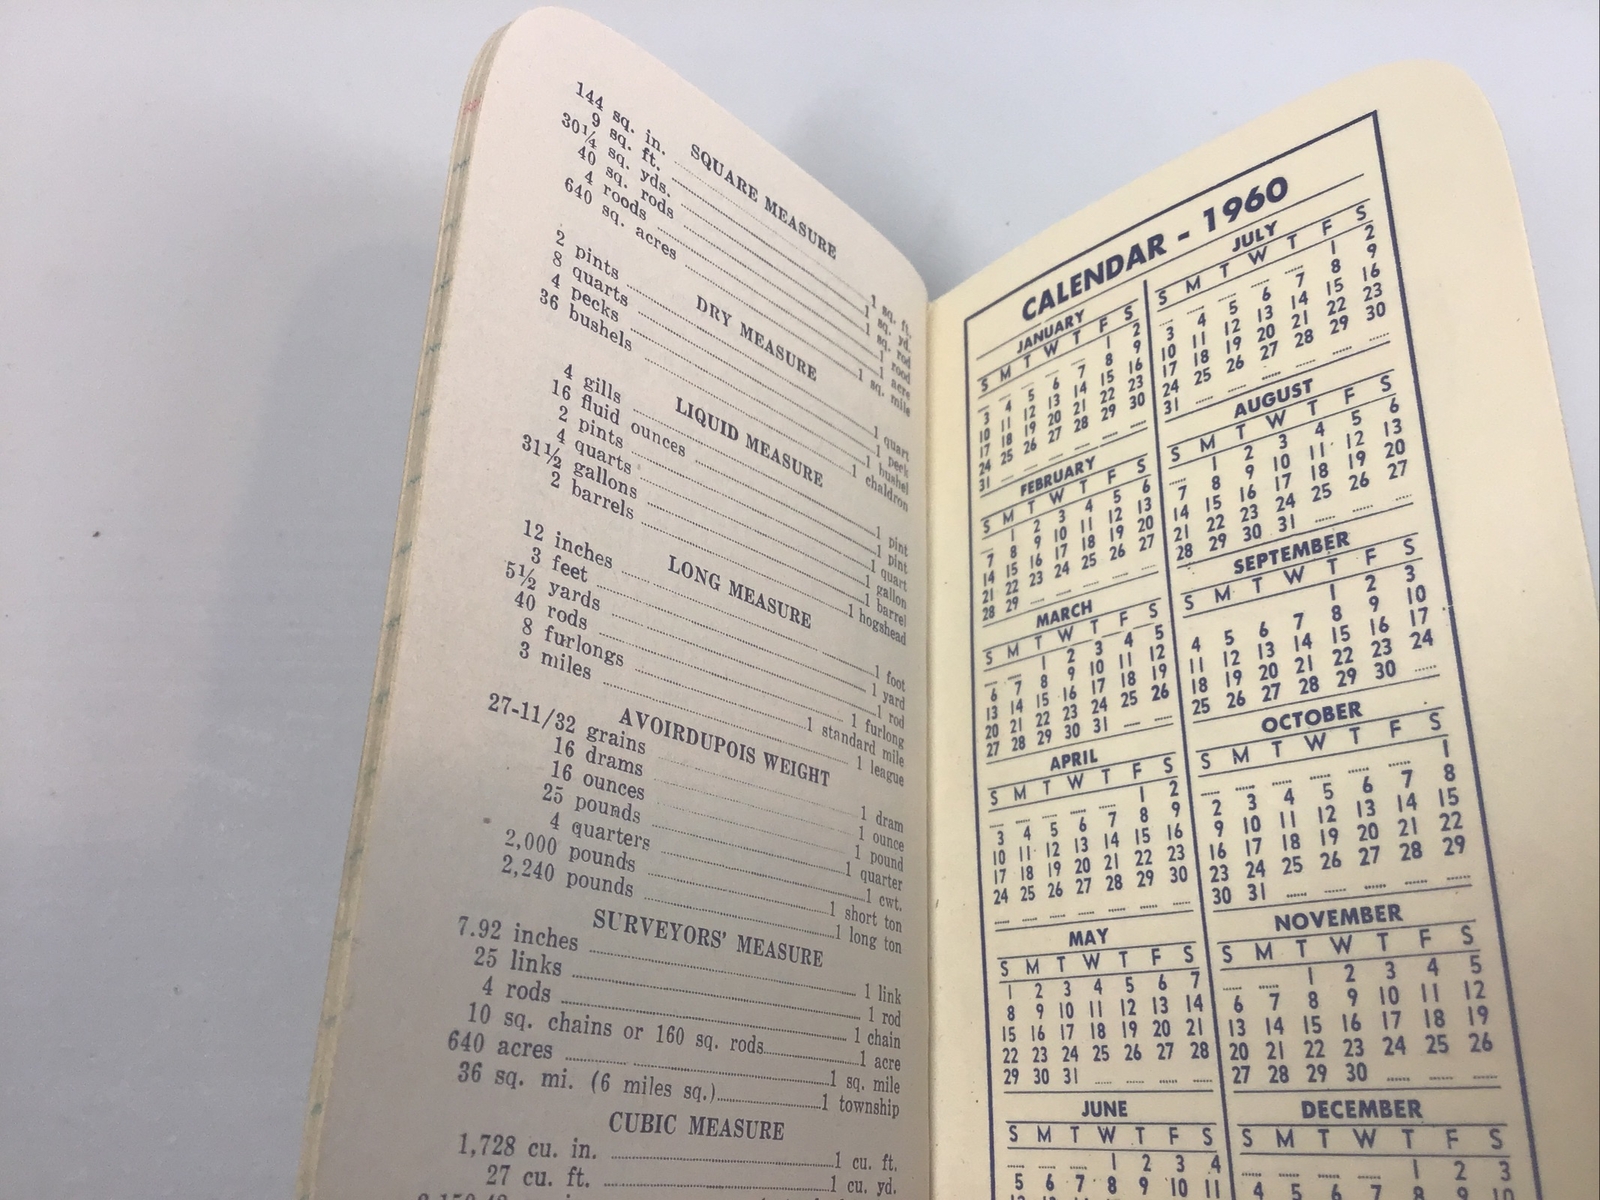 SQUARE MEASURE
144 sq. in. .......... 1 sq. ft.
9 sq. ft. .......... 1 sq. yd.
30¼ sq. yds. .......... 1 sq. rod
40 sq. rods .......... 1 rood
4 roods .......... 1 acre
640 sq. acres .......... 1 sq. mile
DRY MEASURE
2 pints .......... 1 quart
8 quarts .......... 1 peck
4 pecks .......... 1 bushel
36 bushels .......... 1 chaldron
LIQUID MEASURE
4 gills .......... 1 pint
16 fluid ounces .......... 1 pint
2 pints .......... 1 quart
4 quarts .......... 1 gallon
31½ gallons .......... 1 barrel
2 barrels .......... 1 hogshead
LONG MEASURE
12 inches .......... 1 foot
3 feet .......... 1 yard
5½ yards .......... 1 rod
40 rods .......... 1 furlong
8 furlongs .......... 1 standard mile
3 miles .......... 1 league
AVOIRDUPOIS WEIGHT
27-11/32 grains .......... 1 dram
16 drams .......... 1 ounce
16 ounces .......... 1 pound
25 pounds .......... 1 quarter
4 quarters .......... 1 cwt.
2,000 pounds .......... 1 short ton
2,240 pounds .......... 1 long ton
SURVEYORS' MEASURE
7.92 inches .......... 1 link
25 links .......... 1 rod
4 rods .......... 1 chain
10 sq. chains or 160 sq. rods .......... 1 acre
640 acres .......... 1 sq. mile
36 sq. mi. (6 miles sq.) .......... 1 township
CUBIC MEASURE
1,728 cu. in. .......... 1 cu. ft.
27 cu. ft. .......... 1 cu. yd.
CALENDAR - 1960
JANUARY
S M T W T F S
1 2
3 4 5 6 7 8 9
10 11 12 13 14 15 16
17 18 19 20 21 22 23
24 25 26 27 28 29 30
31
FEBRUARY
S M T W T F S
1 2 3 4 5 6
7 8 9 10 11 12 13
14 15 16 17 18 19 20
21 22 23 24 25 26 27
28 29
MARCH
S M T W T F S
1 2 3 4 5
6 7 8 9 10 11 12
13 14 15 16 17 18 19
20 21 22 23 24 25 26
27 28 29 30 31
APRIL
S M T W T F S
1 2
3 4 5 6 7 8 9
10 11 12 13 14 15 16
17 18 19 20 21 22 23
24 25 26 27 28 29 30
MAY
S M T W T F S
1 2 3 4 5 6 7
8 9 10 11 12 13 14
15 16 17 18 19 20 21
22 23 24 25 26 27 28
29 30 31
JUNE
S M T W T F S
1 2 3 4
5 6 7 8 9 10 11
JULY
S M T W T F S
1 2
3 4 5 6 7 8 9
10 11 12 13 14 15 16
17 18 19 20 21 22 23
24 25 26 27 28 29 30
31
AUGUST
S M T W T F S
1 2 3 4 5 6
7 8 9 10 11 12 13
14 15 16 17 18 19 20
21 22 23 24 25 26 27
28 29 30 31
SEPTEMBER
S M T W T F S
1 2 3
4 5 6 7 8 9 10
11 12 13 14 15 16 17
18 19 20 21 22 23 24
25 26 27 28 29 30
OCTOBER
S M T W T F S
1
2 3 4 5 6 7 8
9 10 11 12 13 14 15
16 17 18 19 20 21 22
23 24 25 26 27 28 29
30 31
NOVEMBER
S M T W T F S
1 2 3 4 5
6 7 8 9 10 11 12
13 14 15 16 17 18 19
20 21 22 23 24 25 26
27 28 29 30
DECEMBER
S M T W T F S
1 2 3
4 5 6 7 8 9 10